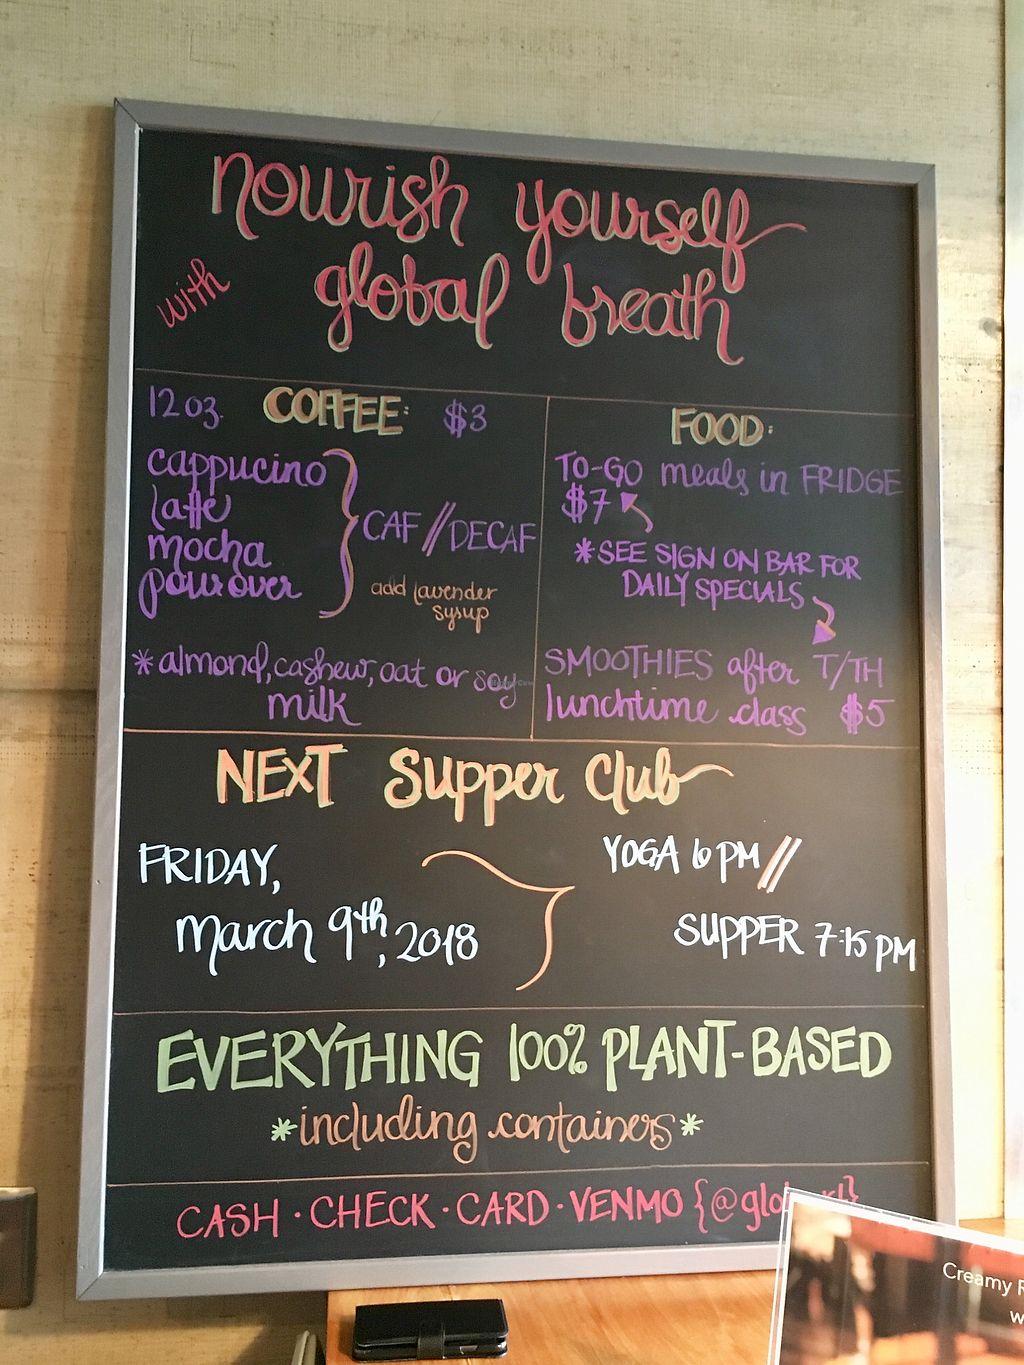 nourish yourself
with global breath
12 oz. COFFEE: $3
cappucino
latte
mocha
pour over
CAF // DECAF
add lavender
sysup
*almond, cashew, oat or soy
milk
FOOD:
TO-GO meals in FRIDGE
$7
*SEE SIGN ON BAR FOR
DAILY SPECIALS
SMOOTHIES after T/TH
lunchtime class $5
NEXT Supper Club
FRIDAY,
March 9th, 2018
YOGA 6 PM //
SUPPER 7:15 PM
EVERYTHING 100% PLANT-BASED
*including containers*
CASH · CHECK · CARD · VENMO
Creamy